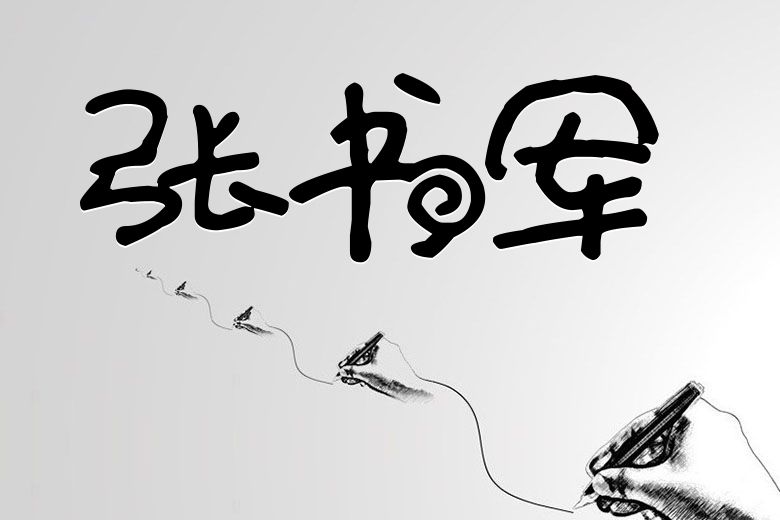 张书军